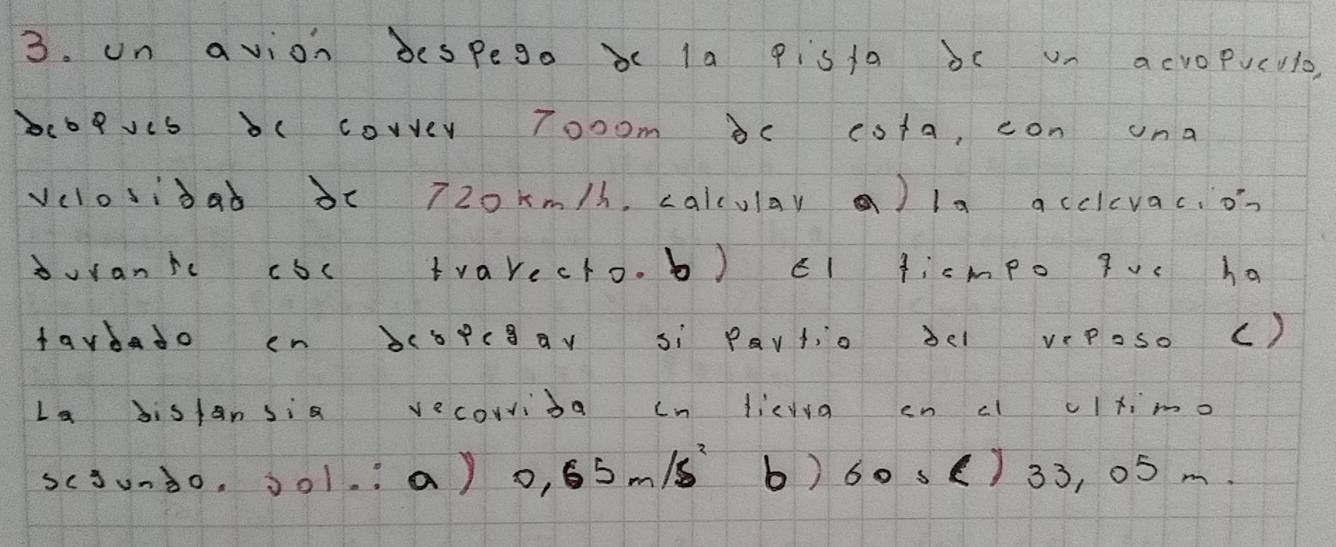 3. un avión despego de la pista de un aeropuerto,
despues de correr 7000m de esta, con una
velosidad de 720 km/h. calcular a) la acelevación
durante ese trayecto. b) El tiempo que ha
tardado en despegar si partio del reposo c)
La distansia recorrida en tierra en el ultimo
segundo. sol.: a) 0,65 m/s² b) 60 s c) 33,05 m.